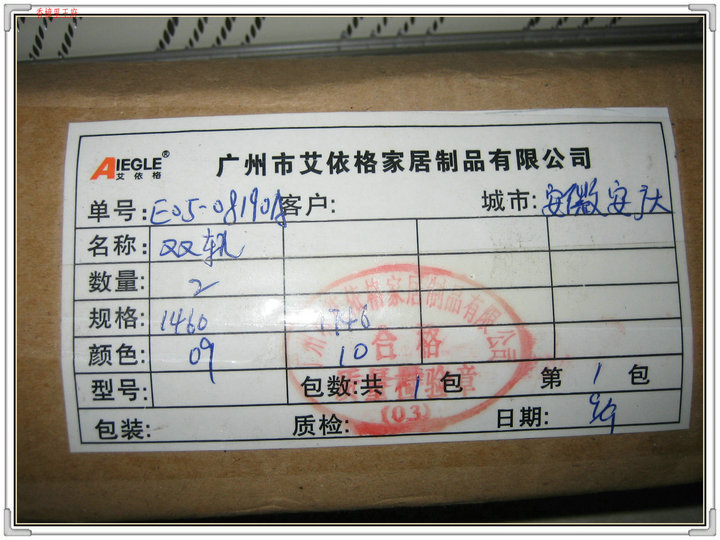 香镜里下府
AIEGLE®
艾依格
广州市艾依格家居制品有限公司
单号: E05-081901A 客户: 城市: 安徽安庆
名称: 双轨
数量: 2
规格: 1460 1746
颜色: 09 10
型号: 包数:共 1 包 第 1 包
包装: 质检: 日期: 9/9
广州市艾依格家居制品有限公司
合格
质量检验章
(03)